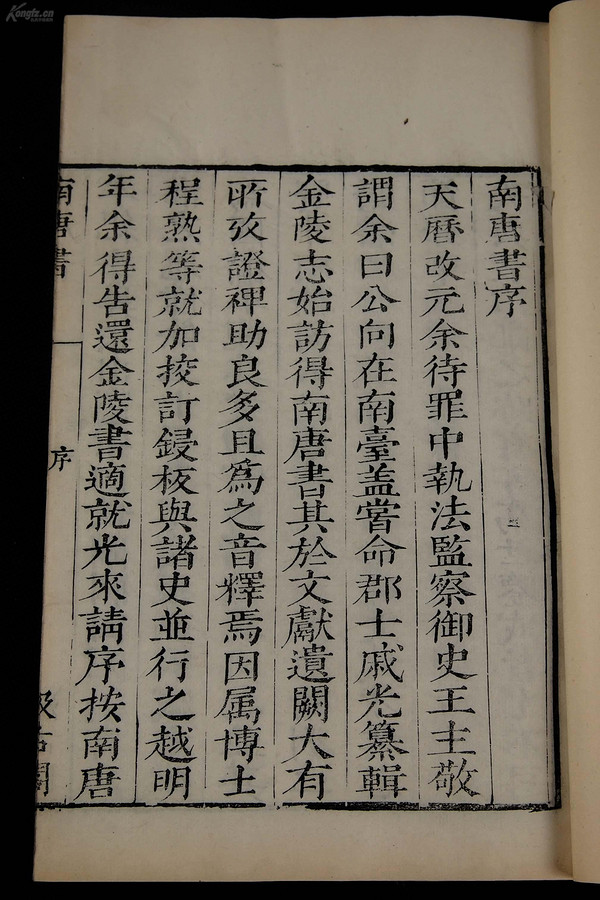 南唐書序
天曆改元余待罪中執法監察御史王主敬
謂余曰公向在南臺盖嘗命郡士戚光纂輯
金陵志始訪得南唐書其於文獻遺闕大有
所攷證裨助良多且爲之音釋焉因属博士
程熟等就加挍訂鋟板與諸史並行之越明
年余得告還金陵書適就光來請序按南唐
南唐書
序
汲古閣
Kongfz.cn